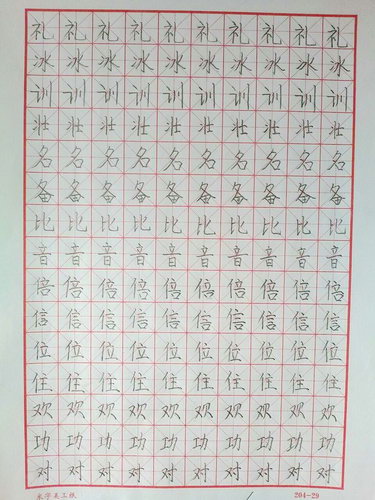 礼礼礼礼礼礼礼礼礼礼
冰冰冰冰冰冰冰冰冰冰
训训训训训训训训训训
壮壮壮壮壮壮壮壮壮壮
名名名名名名名名名名
备备备备备备备备备备
比比比比比比比比比比
音音音音音音音音音音
倍倍倍倍倍倍倍倍倍倍
信信信信信信信信信信
位位位位位位位位位位
住住住住住住住住住住
欢欢欢欢欢欢欢欢欢欢
功功功功功功功功功功
对对对对对对对对对对
204-29